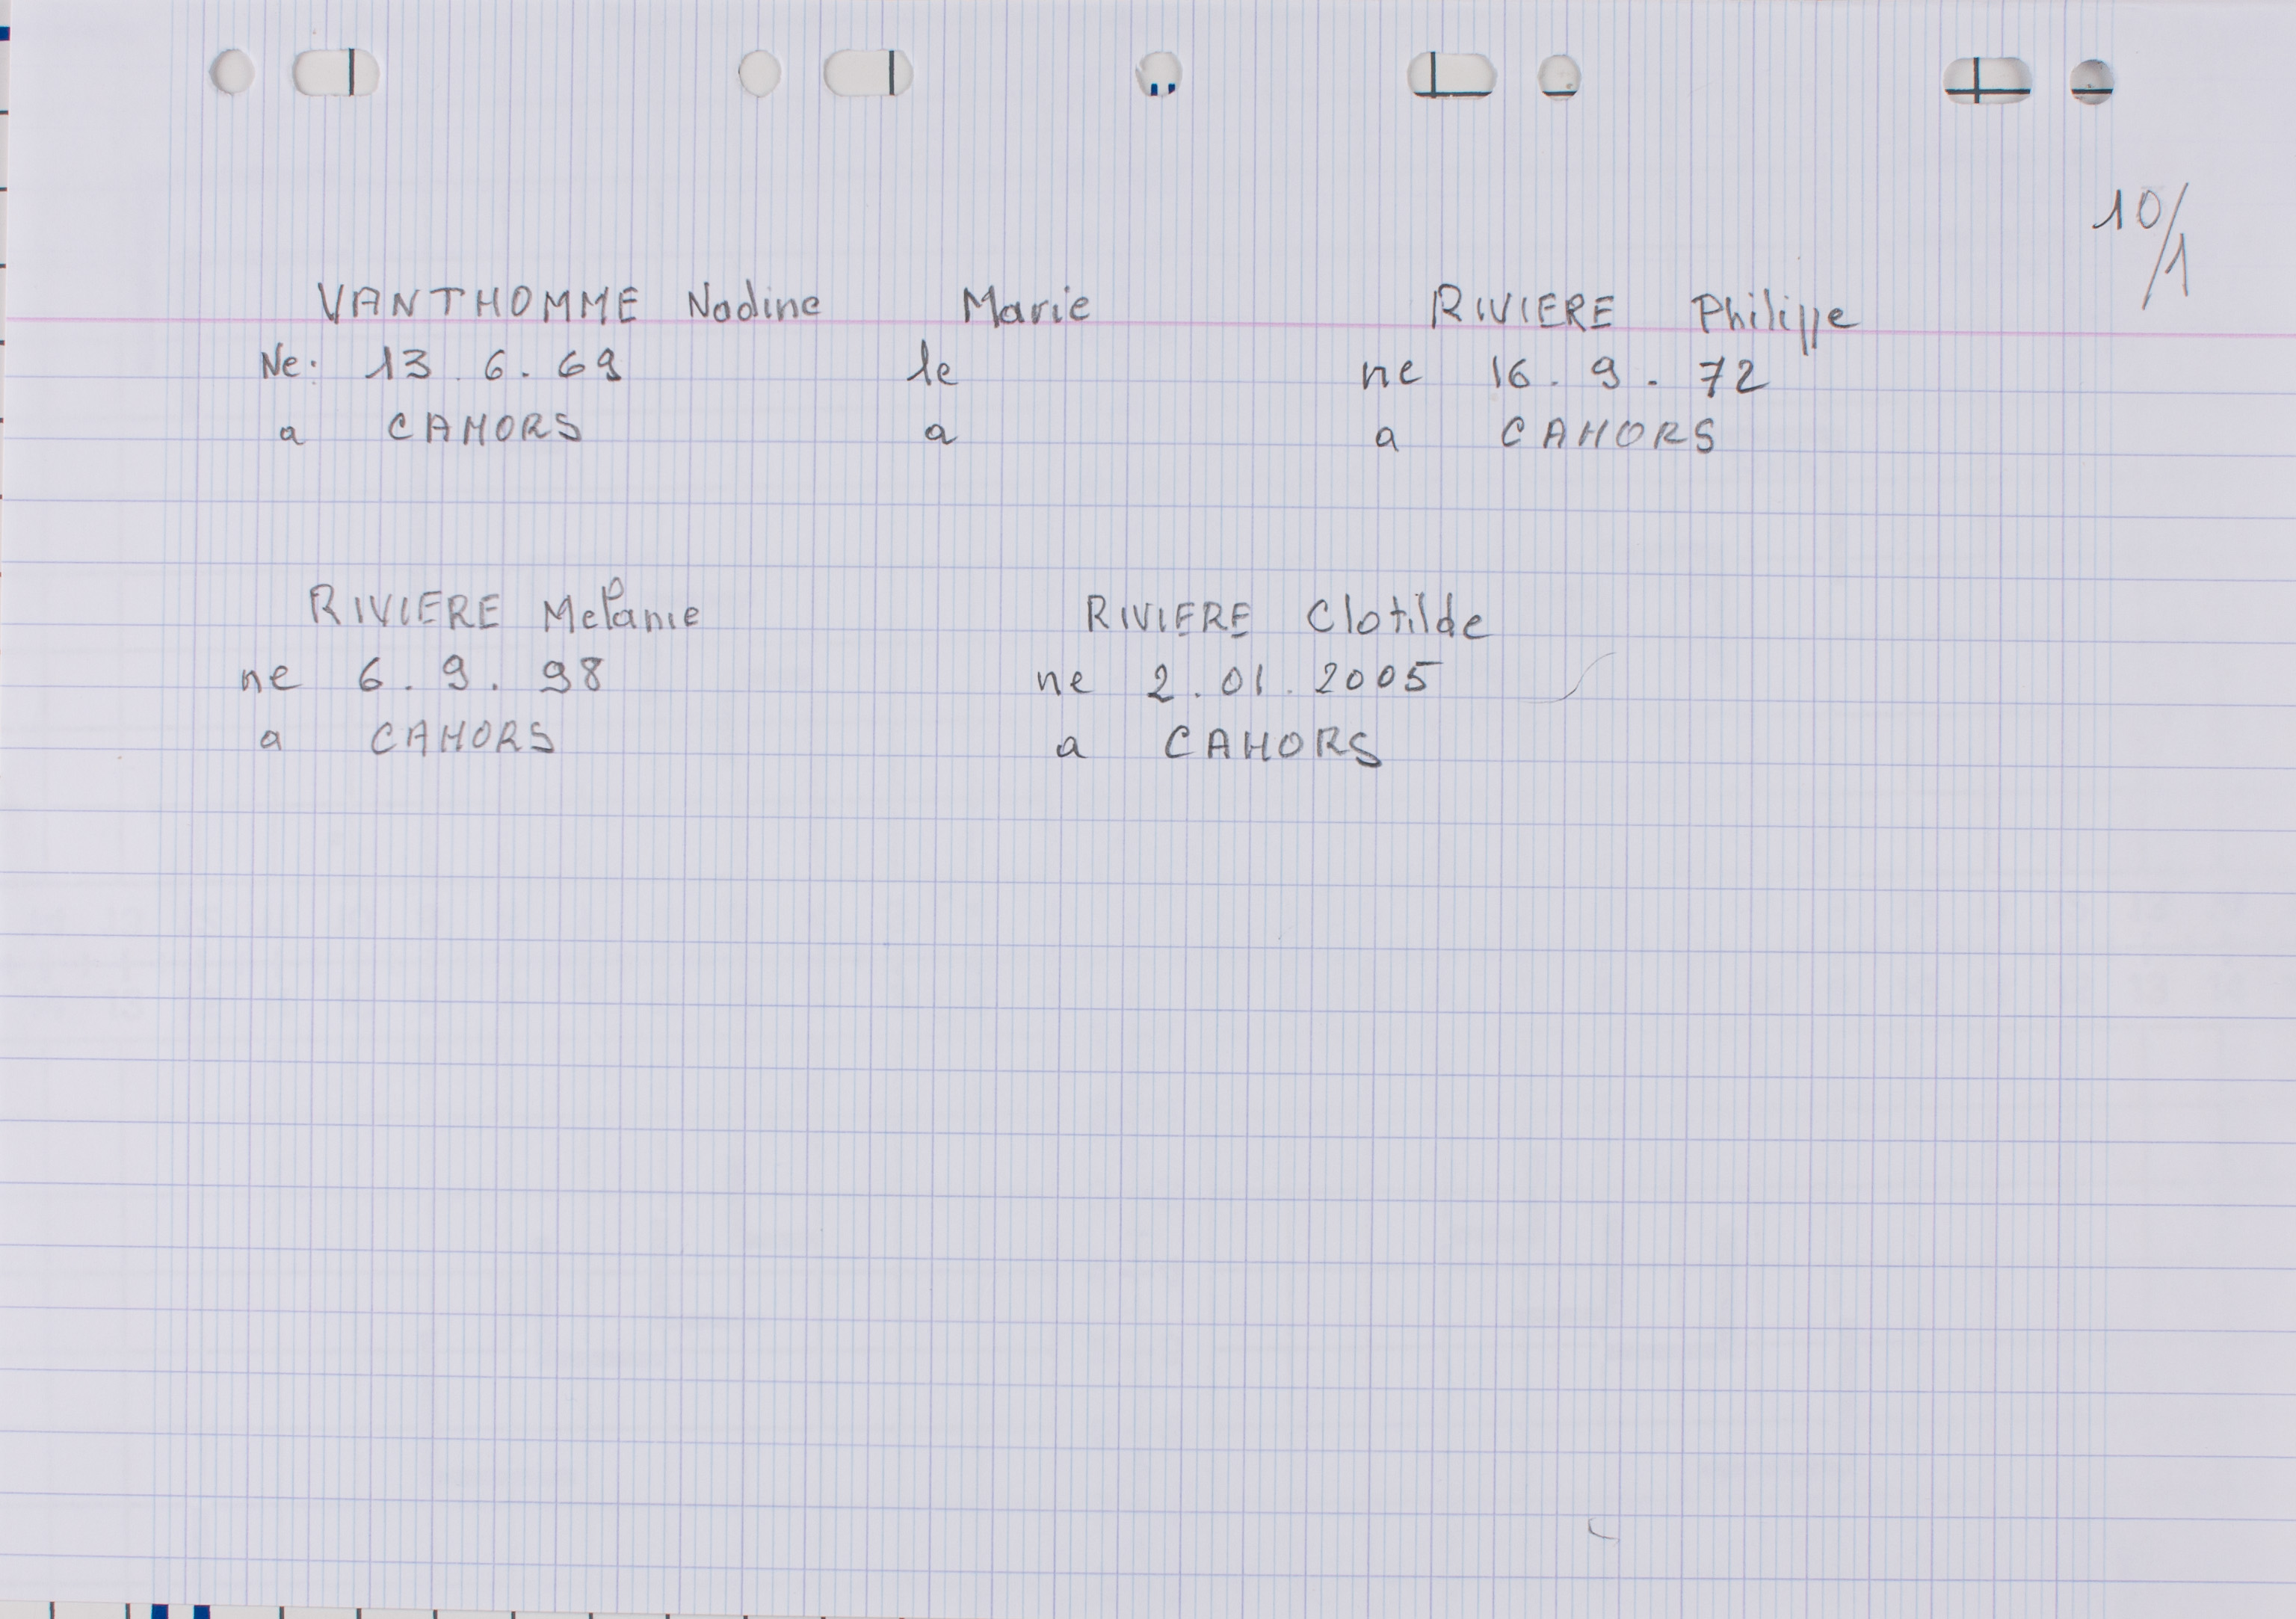 10/1
VANTHOMME Nadine Marie RIVIERE Philippe
Ne. 13.6.69 le ne 16.9.72
a CAHORS a a CAHORS
RIVIERE Melanie RIVIERE Clotilde
ne 6.9.98 ne 2.01.2005
a CAHORS a CAHORS